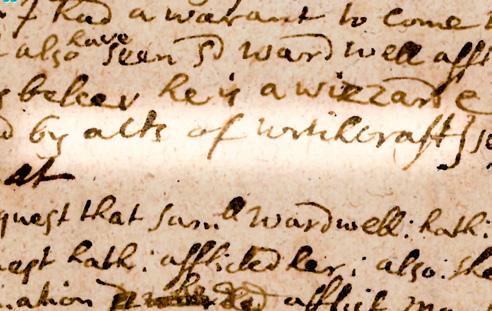 I had a warant to come
also have seen sd wardwell afft
beleev he is a wizzard
by acts of witchcraft] se
at
quest that Samll wardwell: hath:
hath: afflicted her: also: the
ination afflict